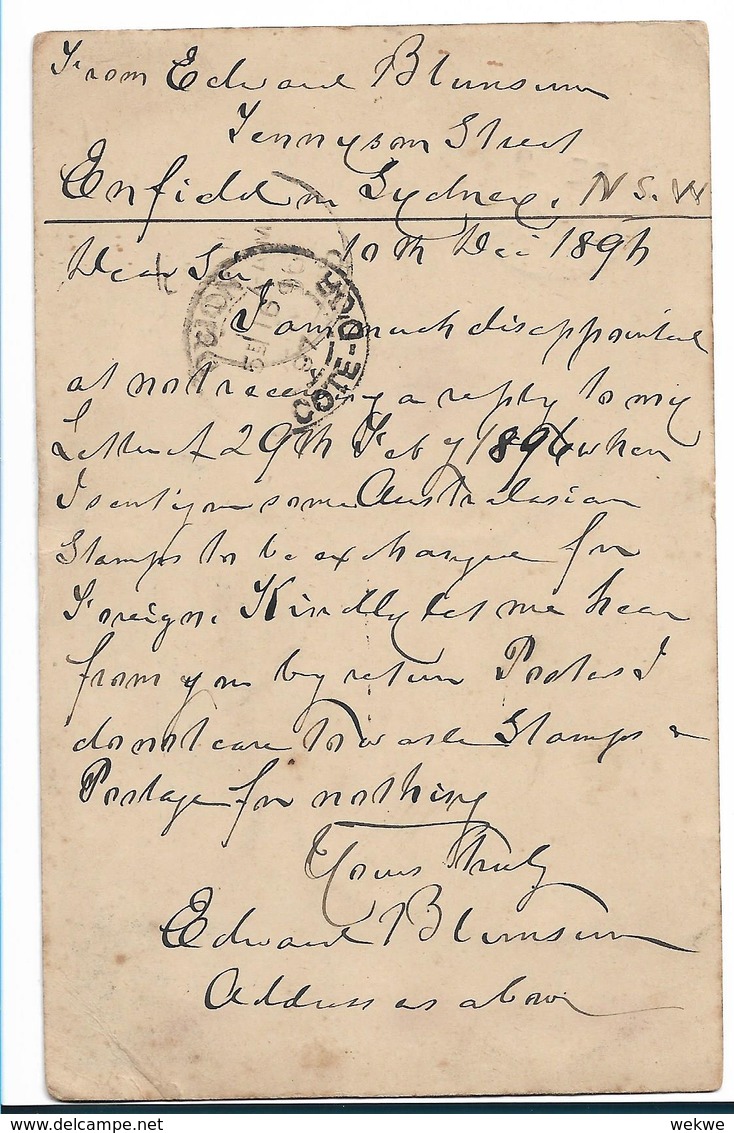 From Edward Blunsum
Tennyson Street
Enfield Sydney, N.S.W
Dear Sir 10th Dec 1896
I am much disappointed
at not receiving a reply to my
Letter of 29th Feby 1896 when
I sent you some Australasian
Stamps to be exchange for
Foreign. Kindly let me hear
from you by return Post as I
do not care to waste Stamps &
Postage for nothing
Yours truly
Edward Blunsum
Address as above
COTE-D'OR
wekwe